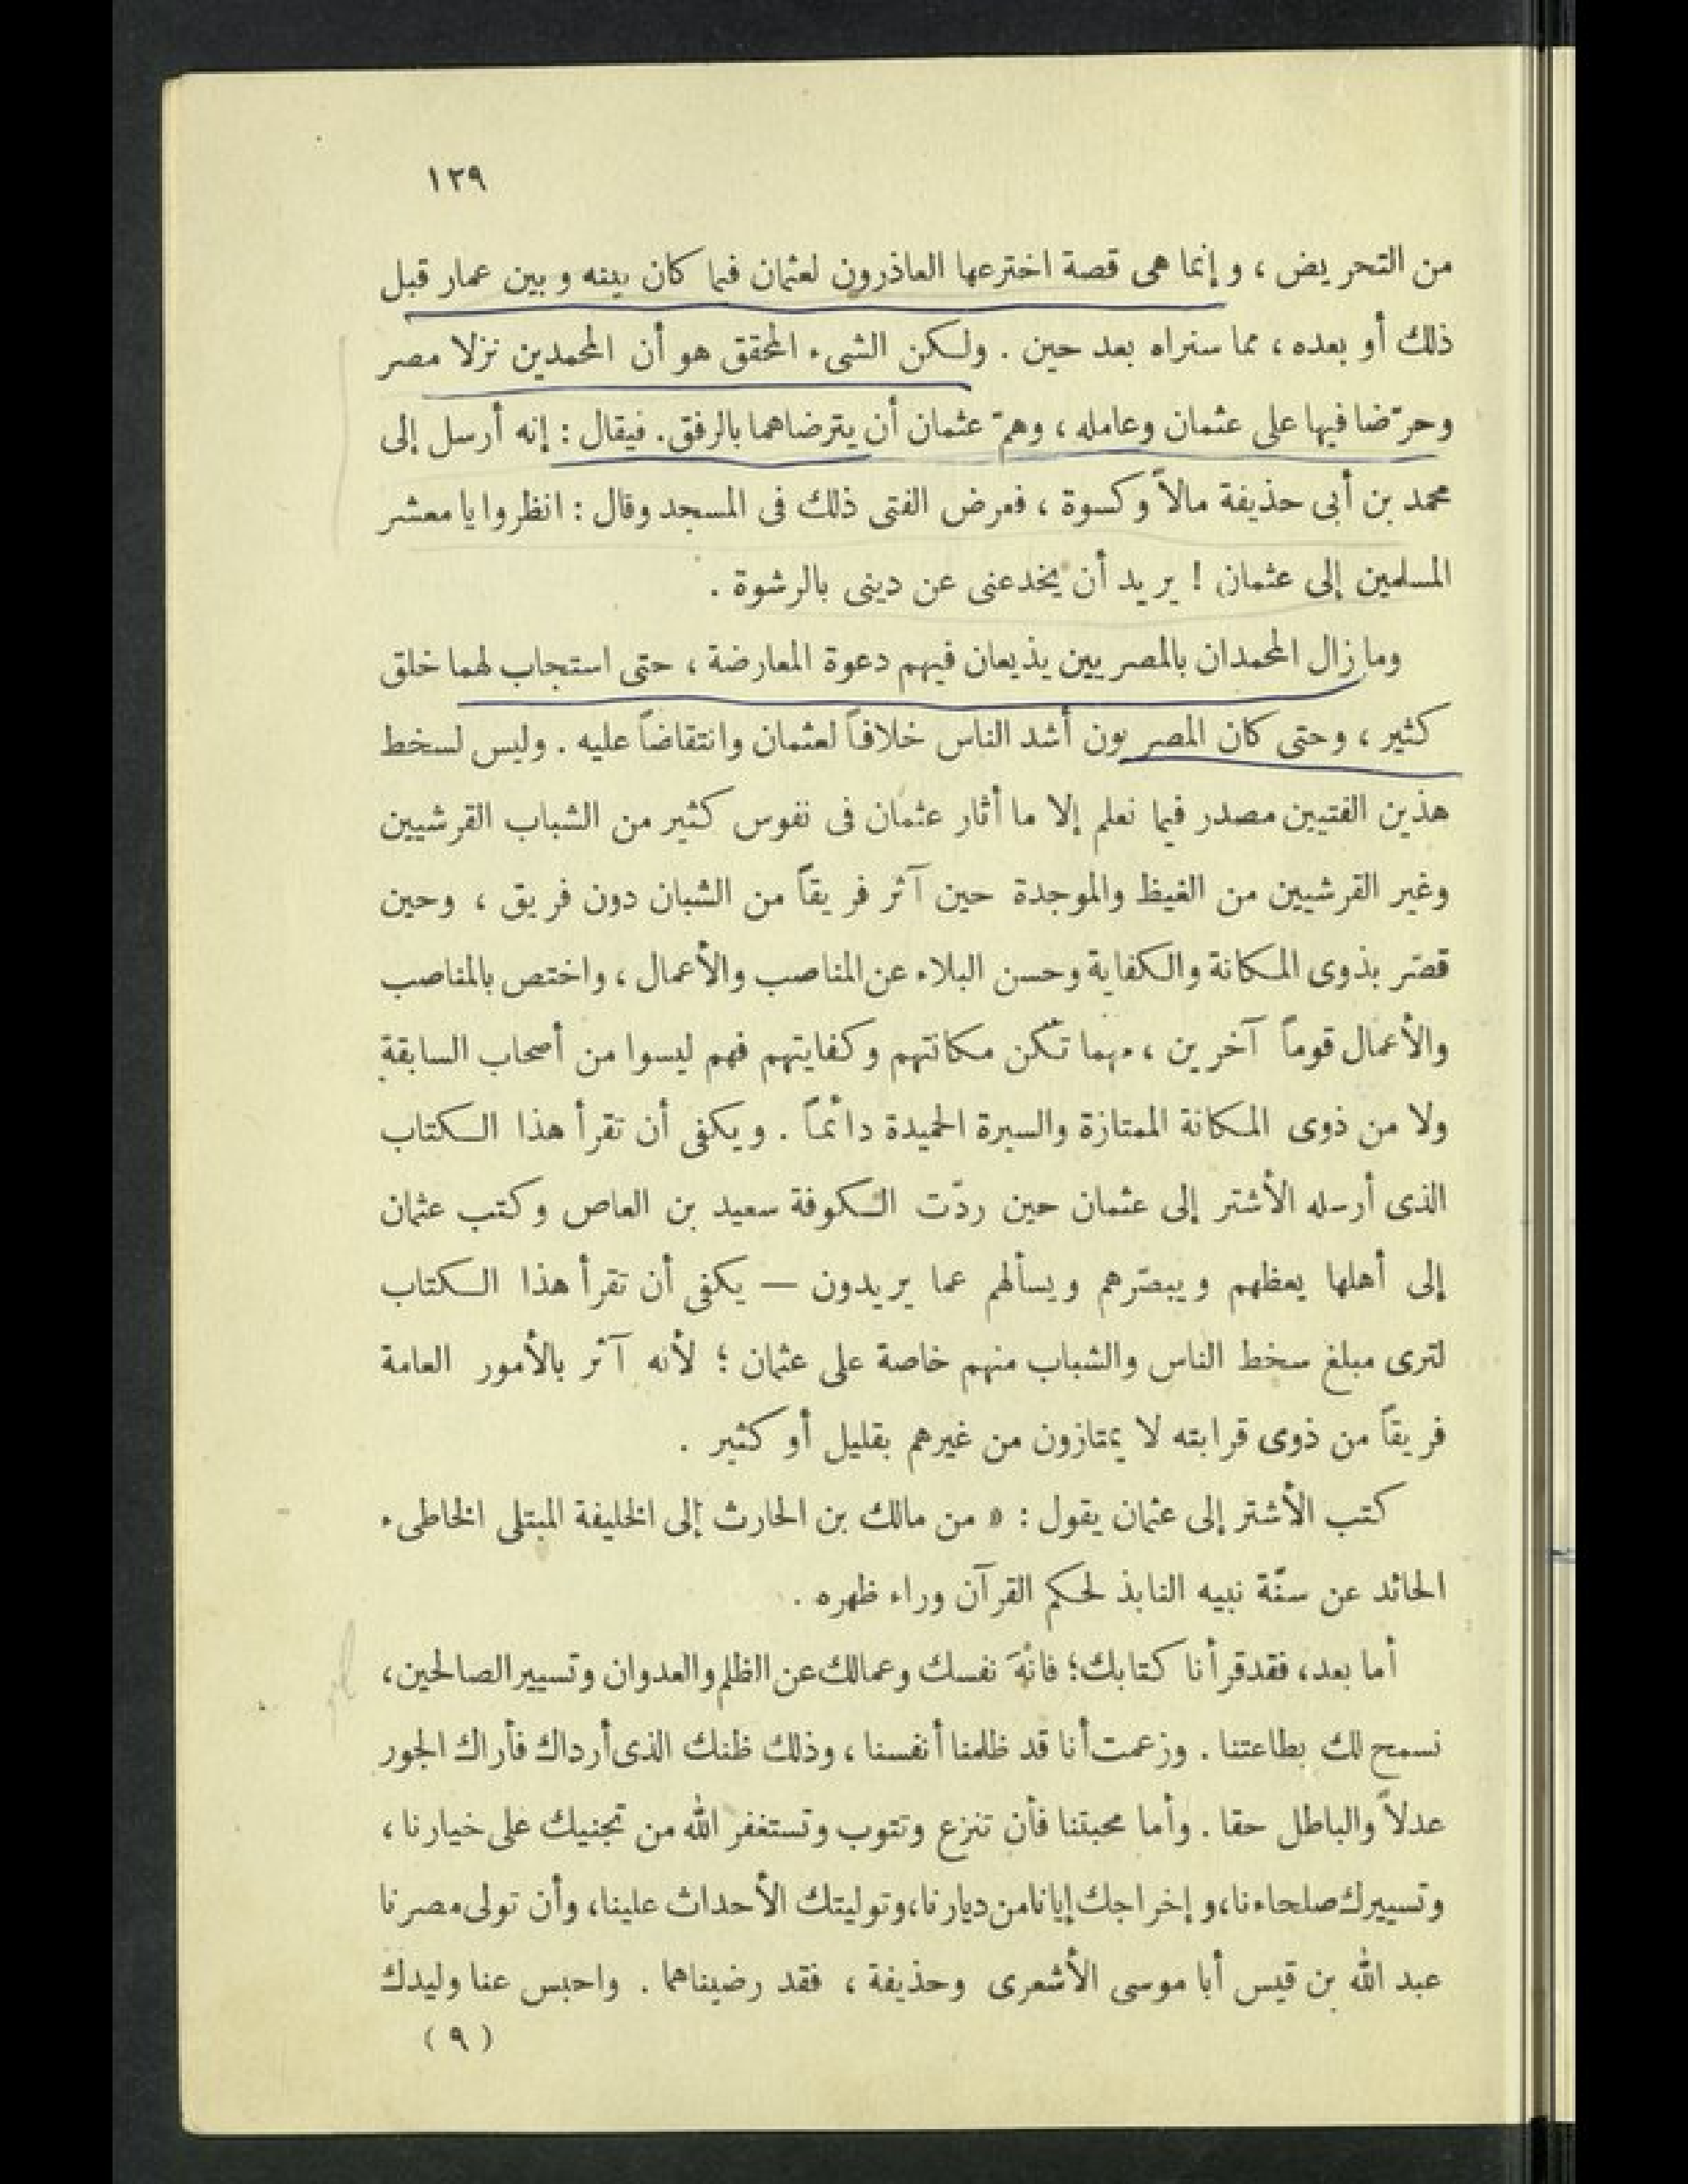 ١٢٩
من التحريض ، وإنما هى قصة اخترعها العاذرون لعثمان فيما كان بينه وبين عمار قبل
ذلك أو بعده ، مما سنراه بعد حين . ولكن الشىء المحقق هو أن المحمدين نزلا مصر
وحرّضا فيها على عثمان وعامله ، وهمّ عثمان أن يترضاهما بالرفق. فيقال : إنه أرسل إلى
محمد بن أبى حذيفة مالاً وكسوة ، فعرض الفتى ذلك فى المسجد وقال : انظروا يا معشر
المسلمين إلى عثمان ! يريد أن يخدعنى عن دينى بالرشوة .
وما زال المحمدان بالمصريين يذيعان فيهم دعوة المعارضة ، حتى استجاب لهما خلق
كثير ، وحتى كان المصريون أشد الناس خلافاً لعثمان وانتقاضاً عليه . وليس لسخط
هذين الفتيين مصدر فيما نعلم إلا ما أثار عثمان فى نفوس كثير من الشباب القرشيين
وغير القرشيين من الغيظ والموجدة حين آثر فريقاً من الشبان دون فريق ، وحين
قصّر بذوى المكانة والكفاية وحسن البلاء عن المناصب والأعمال ، واختص بالمناصب
والأعمال قوماً آخرين ، مهما تكن مكانتهم وكفايتهم فهم ليسوا من أصحاب السابقة
ولا من ذوى المكانة الممتازة والسيرة الحميدة دائماً . ويكفى أن تقرأ هذا الكتاب
الذى أرسله الأشتر إلى عثمان حين ردّت الكوفة سعيد بن العاص وكتب عثمان
إلى أهلها يعظهم ويبصّرهم ويسألهم عما يريدون — يكفى أن تقرأ هذا الكتاب
لترى مبلغ سخط الناس والشباب منهم خاصة على عثمان ؛ لأنه آثر بالأمور العامة
فريقاً من ذوى قرابته لا يمتازون من غيرهم بقليل أو كثير .
كتب الأشتر إلى عثمان يقول : « من مالك بن الحارث إلى الخليفة المبتلى الخاطىء
الحائد عن سنّة نبيه النابذ لحكم القرآن وراء ظهره .
أما بعد، فقد قرأنا كتابك؛ فانْهَ نفسك وعمالك عن الظلم والعدوان وتسيير الصالحين،
نسمح لك بطاعتنا . وزعمت أنا قد ظلمنا أنفسنا ، وذلك ظنك الذى أرداك فأراك الجور
عدلاً والباطل حقا . وأما محبتنا فأن تنزع وتتوب وتستغفر الله من تجنيك على خيارنا ،
وتسييرك صلحاءنا، وإخراجك إيانا من ديارنا، وتوليتك الأحداث علينا، وأن تولى مصرنا
عبد الله بن قيس أبا موسى الأشعرى وحذيفة ، فقد رضيناهما . واحبس عنا وليدك
( ٩ )